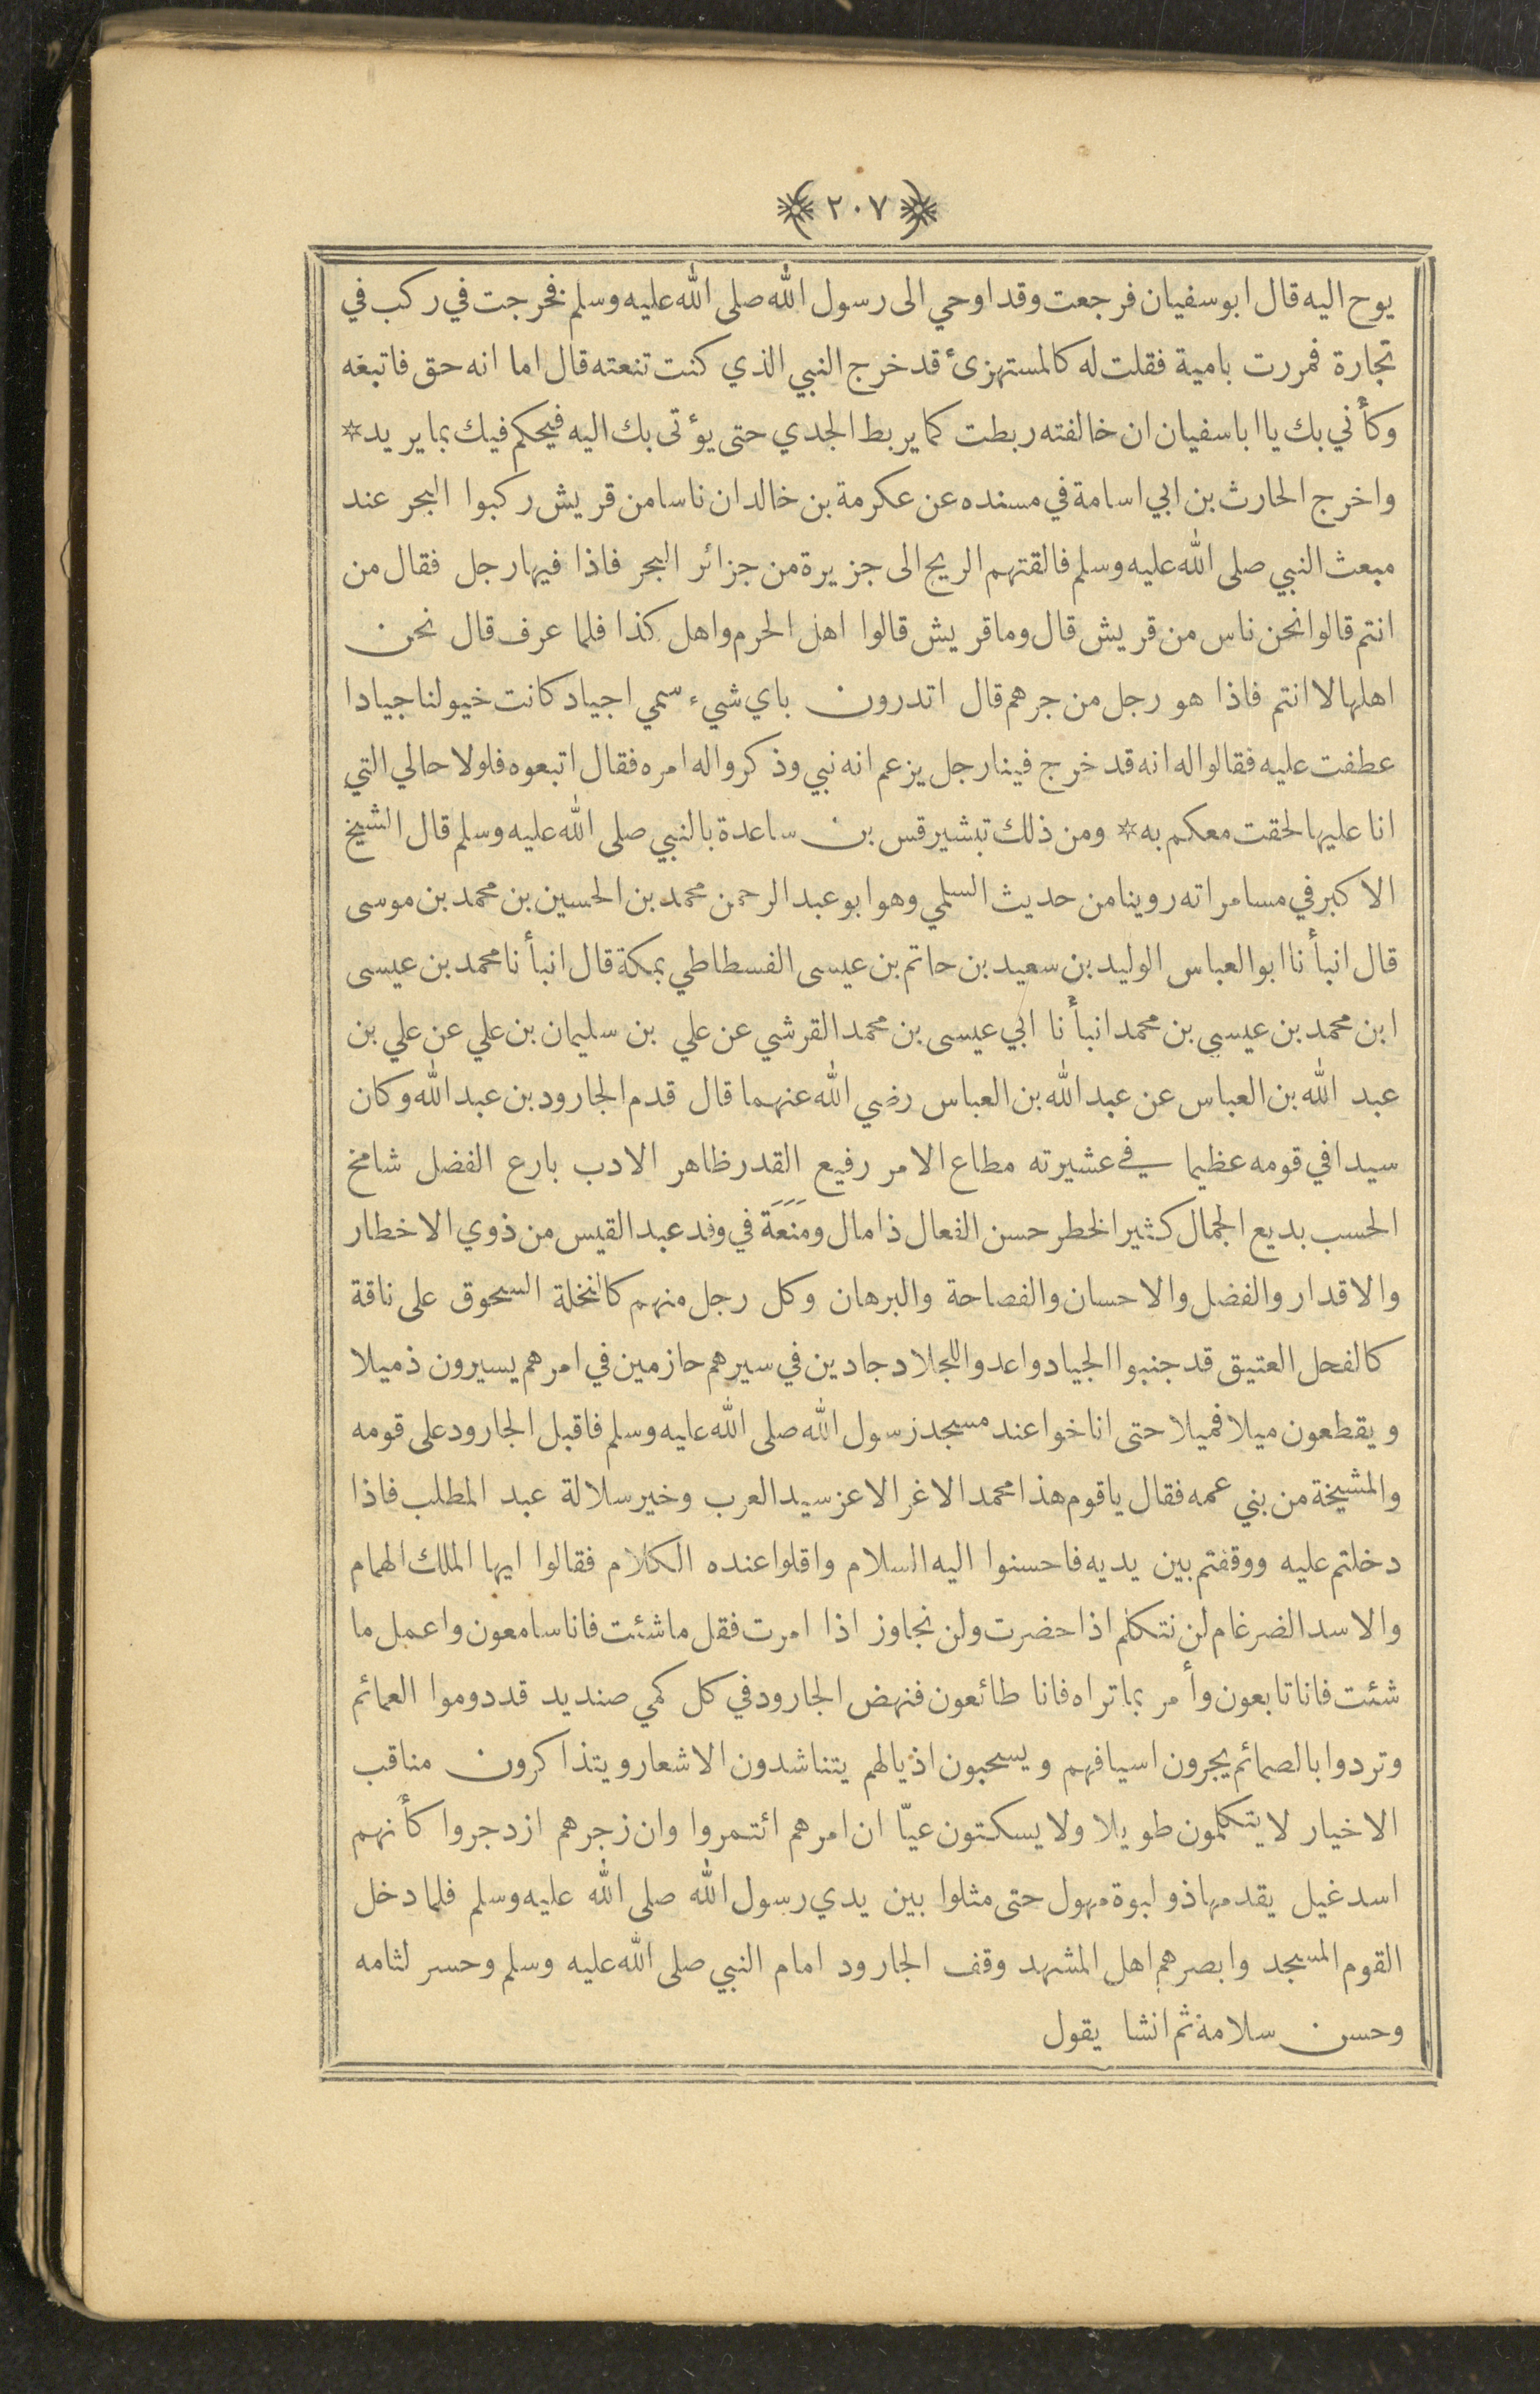 ﴿٢٠٧﴾
يوح اليه قال ابو سفيان فرجعت وقد اوحي الى رسول الله صلى الله عليه وسلم فخرجت في ركب في
تجارة فمررت بامية فقلت له كالمستهزئ قد خرج النبي الذي كنت تنعته قال اما انه حق فاتبعه
وكأني بك يا ابا سفيان ان خالفته ربطت كما يربط الجدي حتى يؤتى بك اليه فيحكم فيك بما يريد *
واخرج الحارث بن ابي اسامة في مسنده عن عكرمة بن خالد ان ناسا من قريش ركبوا البحر عند
مبعث النبي صلى الله عليه وسلم فالقتهم الريح الى جزيرة من جزائر البحر فاذا فيها رجل فقال من
انتم قالوا نحن ناس من قريش قال وما قريش قالوا اهل الحرم واهل كذا فلما عرف قال نحن
اهلها لا انتم فاذا هو رجل من جرهم قال اتدرون باي شيء سمي اجياد كانت خيولنا جيادا
عطفت عليه فقالوا له انه قد خرج فينا رجل يزعم انه نبي وذكروا له امره فقال اتبعوه فلولا حالي التي
انا عليها لحقت معكم به * ومن ذلك تبشير قس بن ساعدة بالنبي صلى الله عليه وسلم قال الشيخ
الاكبر في مسامراته روينا من حديث السلمي وهو ابو عبد الرحمن محمد بن الحسين بن محمد بن موسى
قال انبأنا ابو العباس الوليد بن سعيد بن حاتم بن عيسى الفسطاطي بمكة قال انبأنا محمد بن عيسى
ابن محمد بن عيسى بن محمد انبأنا ابي عيسى بن محمد القرشي عن علي بن سليمان بن علي عن علي بن
عبد الله بن العباس عن عبد الله بن العباس رضي الله عنهما قال قدم الجارود بن عبد الله وكان
سيدا في قومه عظيما في عشيرته مطاع الامر رفيع القدر ظاهر الادب بارع الفضل شامخ
الحسب بديع الجمال كثير الخطر حسن الفعال ذا مال ومَنَعَة في وفد عبد القيس من ذوي الاخطار
والاقدار والفضل والاحسان والفصاحة والبرهان وكل رجل منهم كالنخلة السحوق على ناقة
كالفحل العتيق قد جنبوا الجياد واعدوا للجلاد جادين في سيرهم حازمين في امرهم يسيرون ذميلا
ويقطعون ميلا فميلا حتى اناخوا عند مسجد رسول الله صلى الله عليه وسلم فاقبل الجارود على قومه
والمشيخة من بني عمه فقال يا قوم هذا محمد الاغر الاعز سيد العرب وخير سلالة عبد المطلب فاذا
دخلتم عليه ووقفتم بين يديه فاحسنوا اليه السلام واقلوا عنده الكلام فقالوا ايها الملك الهمام
والاسد الضرغام لن نتكلم اذا حضرت ولن نجاوز اذا امرت فقل ما شئت فانا سامعون واعمل ما
شئت فانا تابعون وأمر بما تراه فانا طائعون فنهض الجارود في كل كمي صنديد قد دوموا العمائم
وتردوا بالصمائم يجرون اسيافهم ويسحبون اذيالهم يتناشدون الاشعار ويتذاكرون مناقب
الاخيار لا يتكلمون طويلا ولا يسكتون عيّا ان امرهم ائتمروا وان زجرهم ازدجروا كأنهم
اسد غيل يقدمها ذو لبوة مهول حتى مثلوا بين يدي رسول الله صلى الله عليه وسلم فلما دخل
القوم المسجد وابصرهم اهل المشهد وقف الجارود امام النبي صلى الله عليه وسلم وحسر لثامه
وحسن سلامة ثم انشا يقول